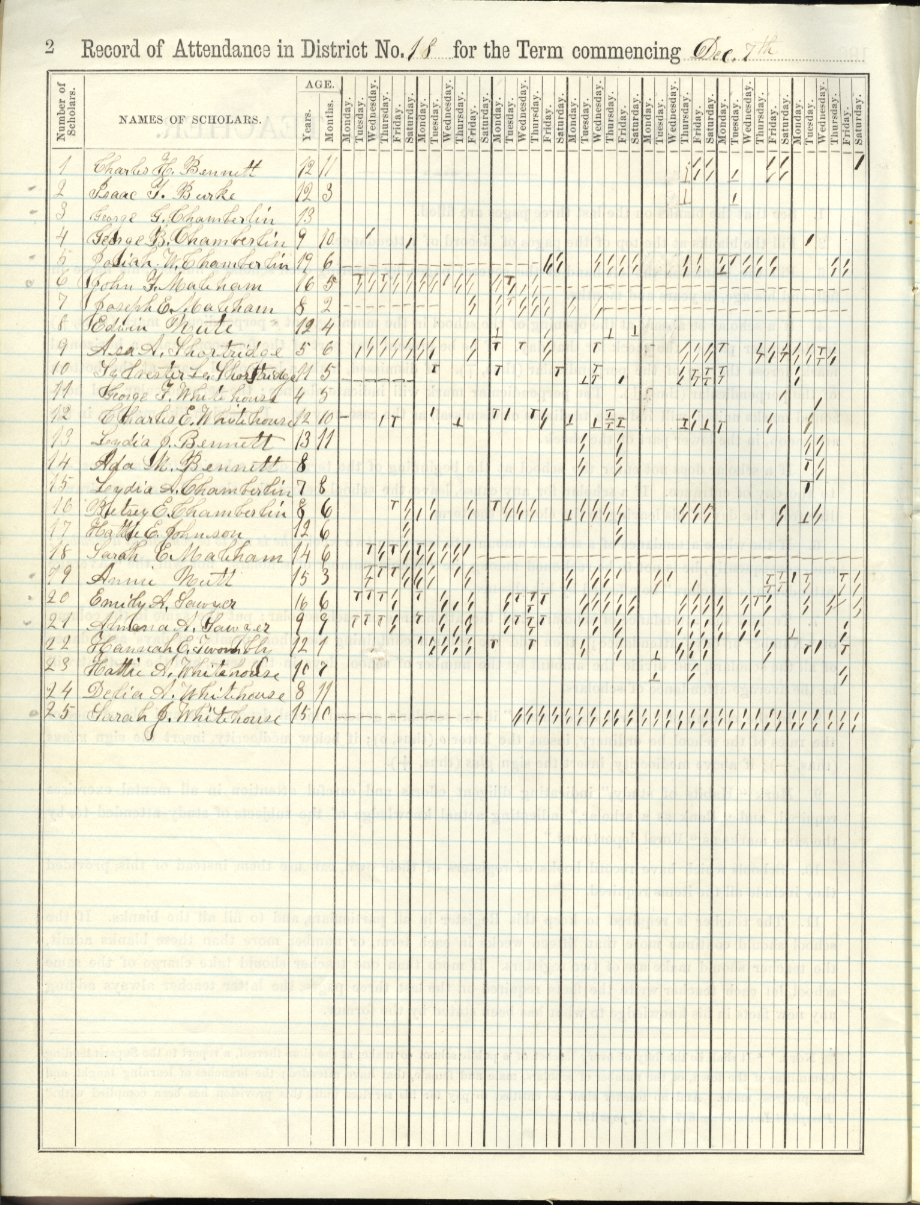 2 Record of Attendance in District No. 18 for the Term commencing Dec. 7th
Number of Scholars. NAMES OF SCHOLARS. AGE. Years. Months. Monday. Tuesday. Wednesday. Thursday. Friday. Saturday. Monday. Tuesday. Wednesday. Thursday. Friday. Saturday. Monday. Tuesday. Wednesday. Thursday. Friday. Saturday. Monday. Tuesday. Wednesday. Thursday. Friday. Saturday. Monday. Tuesday. Wednesday. Thursday. Friday. Saturday. Monday. Tuesday. Wednesday. Thursday. Friday. Saturday. Monday. Tuesday. Wednesday. Thursday. Friday. Saturday.
1 Charles H. Bennett 12 11
2 Isaac F. Burke 12 3
3 George G. Chamberlin 13
4 George B. Chamberlin 9 10
5 W. Chamberlin 19 6
6 John F. Mabham 16 5
7 Joseph E. Mabham 8 2
8 Edwin Nute 12 4
9 Asa A. Shortridge 5 6
10 Sylvester L. Shortridge 11 5
11 George F. Whitehouse 4 5
12 Charles E. Whitehouse 12 10
13 Lydia J. Bennett 13 11
14 Ada M. Bennett 8
15 Lydia A. Chamberlin 7 8
16 Betsey E. Chamberlin 8 6
17 Hattie E. Johnson 12 6
18 Sarah E. Mabham 14 6
19 Annie Nutt 15 3
20 Emily A. Sawyer 16 6
21 Almena A. Sawyer 9 9
22 Hannah E. Twombly 12 1
23 Hattie A. Whitehouse 10 7
24 Delia A. Whitehouse 8 11
25 Sarah J. Whitehouse 15 10